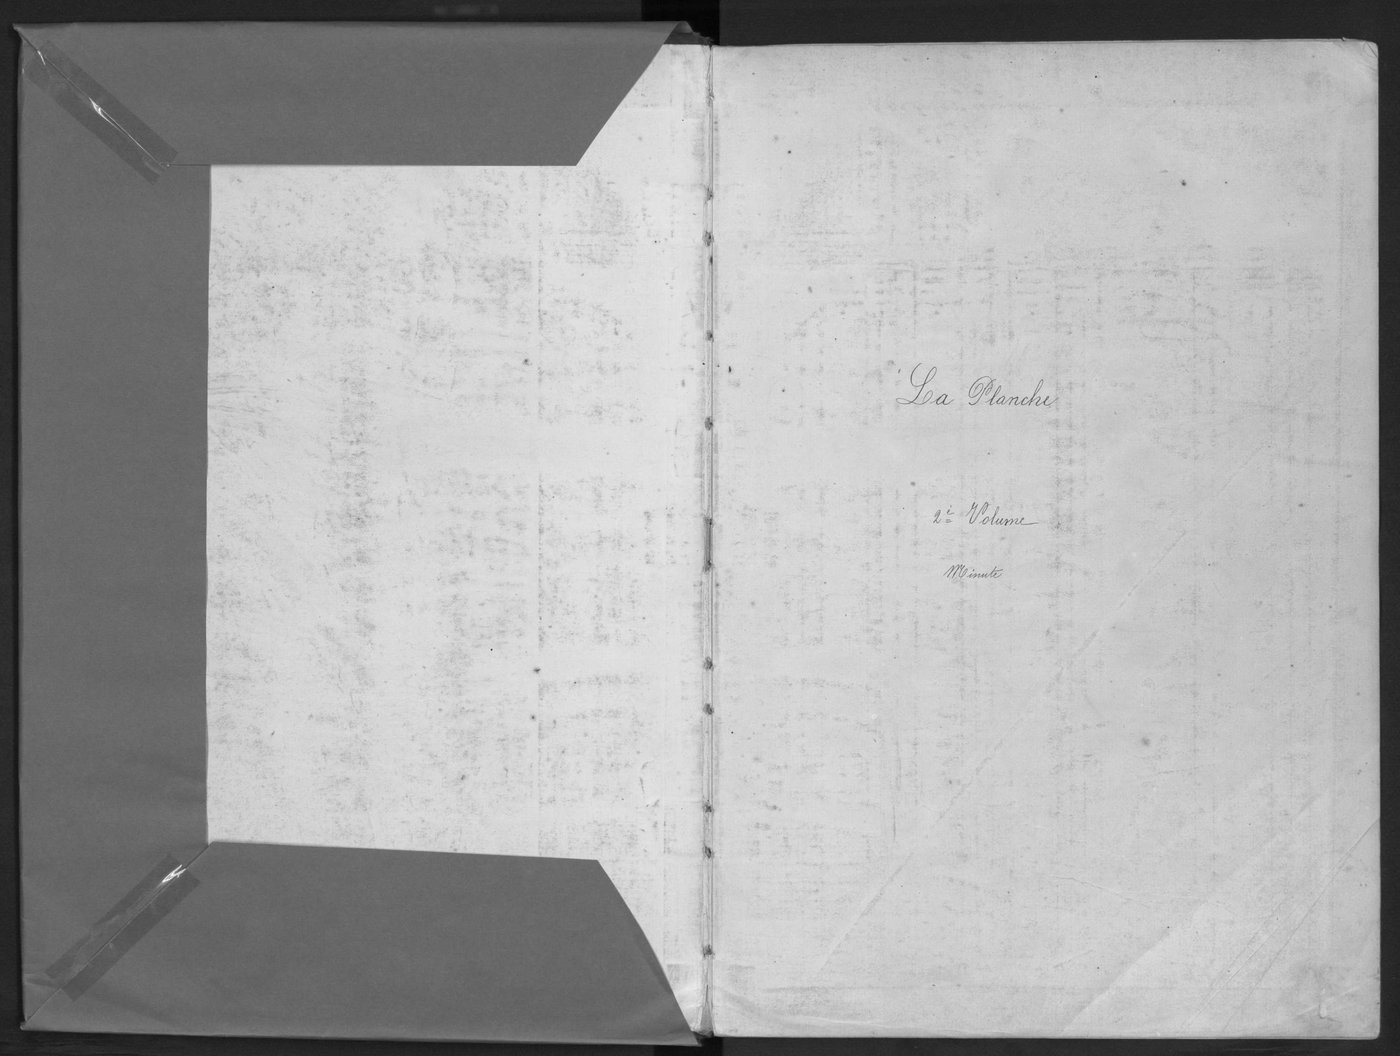 La Planche
2e Volume
Minute